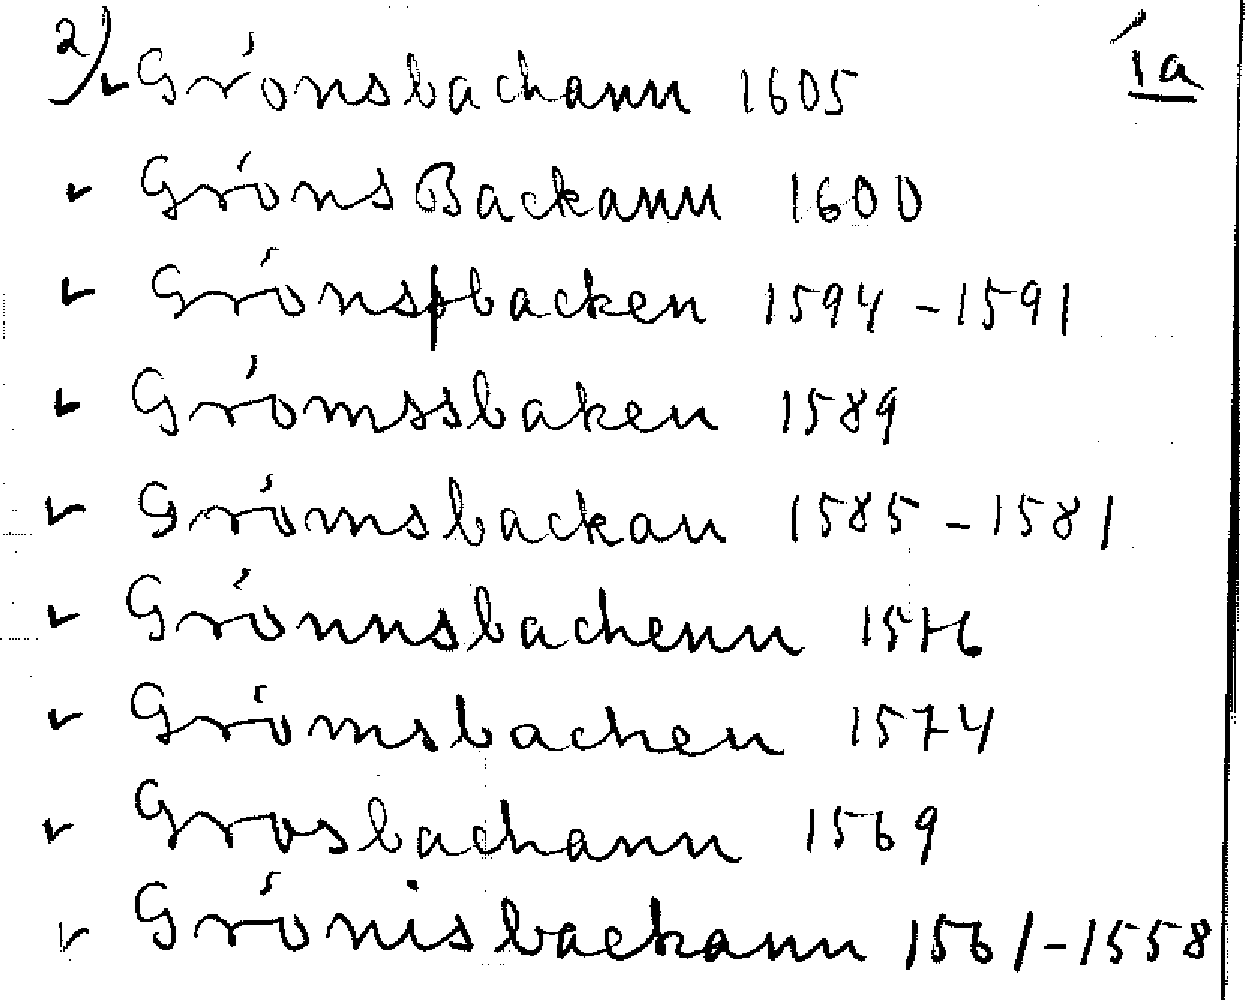 2) Grónsbachann 1605 1a
Gróns Backann 1600
Grónsbacken 1594-1591
Grómssbaken 1589
Grómsbackan 1585-1581
Grónnsbachenn 1576
Grómsbachen 1574
Grosbachann 1569
Grónisbackann 1561-1558